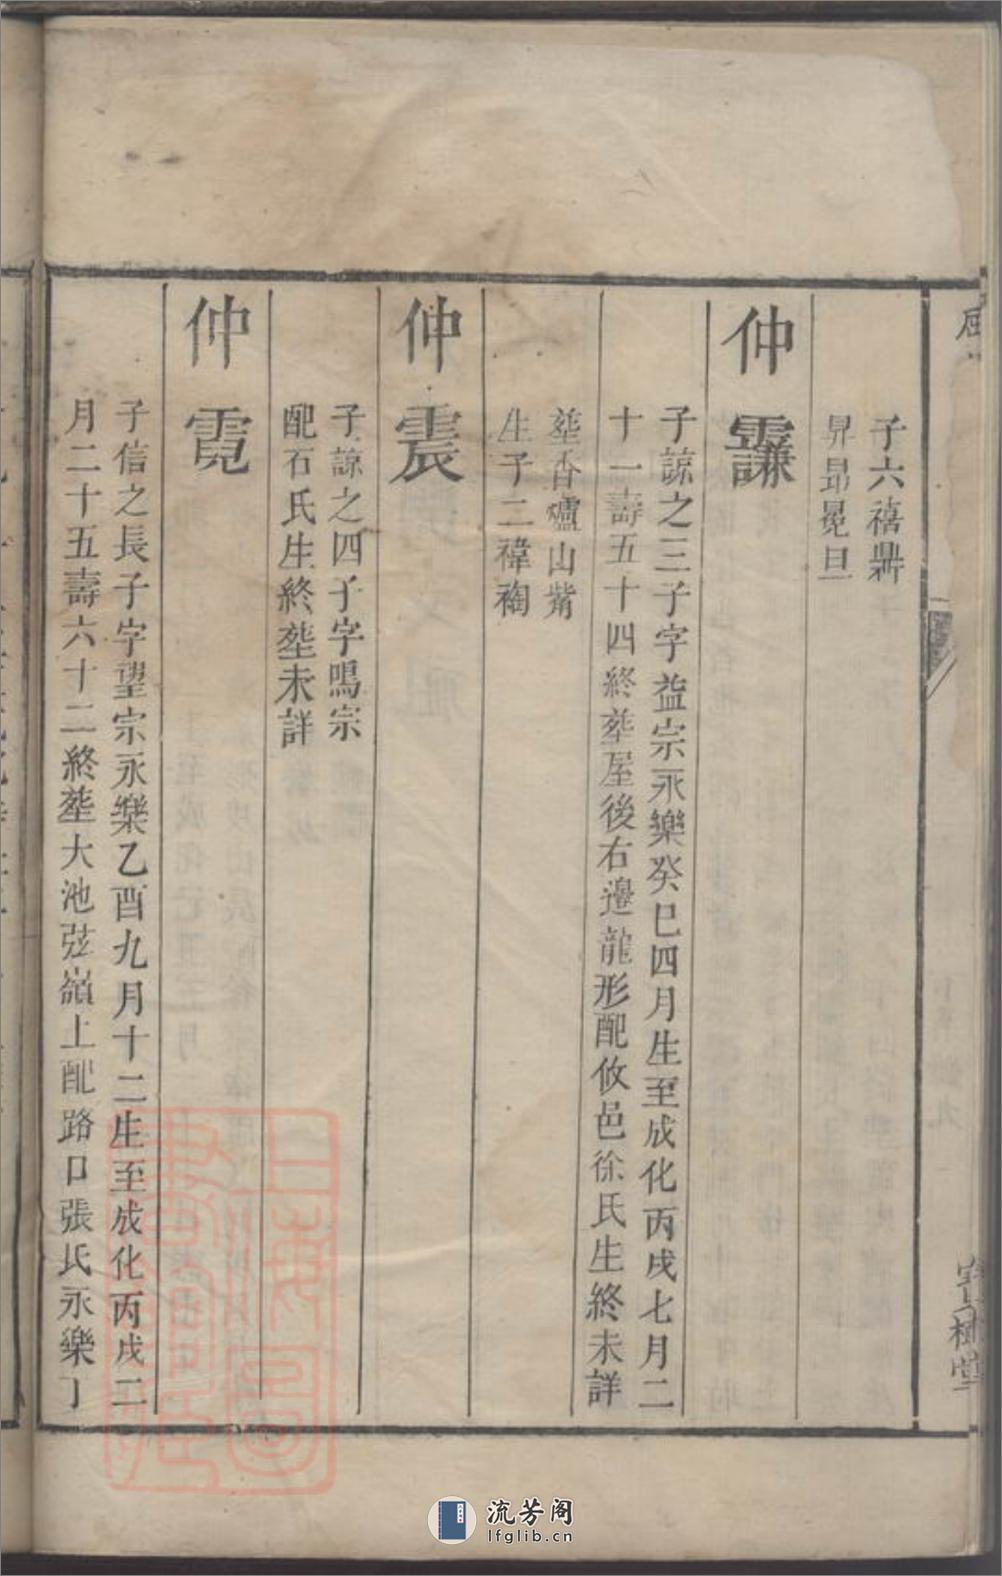 子六禧鼎
昇昂冕旦
仲䨬
子諒之三子字益宗永樂癸巳四月生至成化丙戌七月二
十一壽五十四終塟屋後右邉龍形配攸邑徐氏生終未詳
塟香爐山觜
生子二禕裪
仲震
子諒之四子字鳴宗
配石氏生終塟未詳
仲霓
子信之長子字望宗永樂乙酉九月十二生至成化丙戌二
月二十五壽六十二終塟大池弦嶺上配路口張氏永樂丁
流芳阁
lfglib.cn